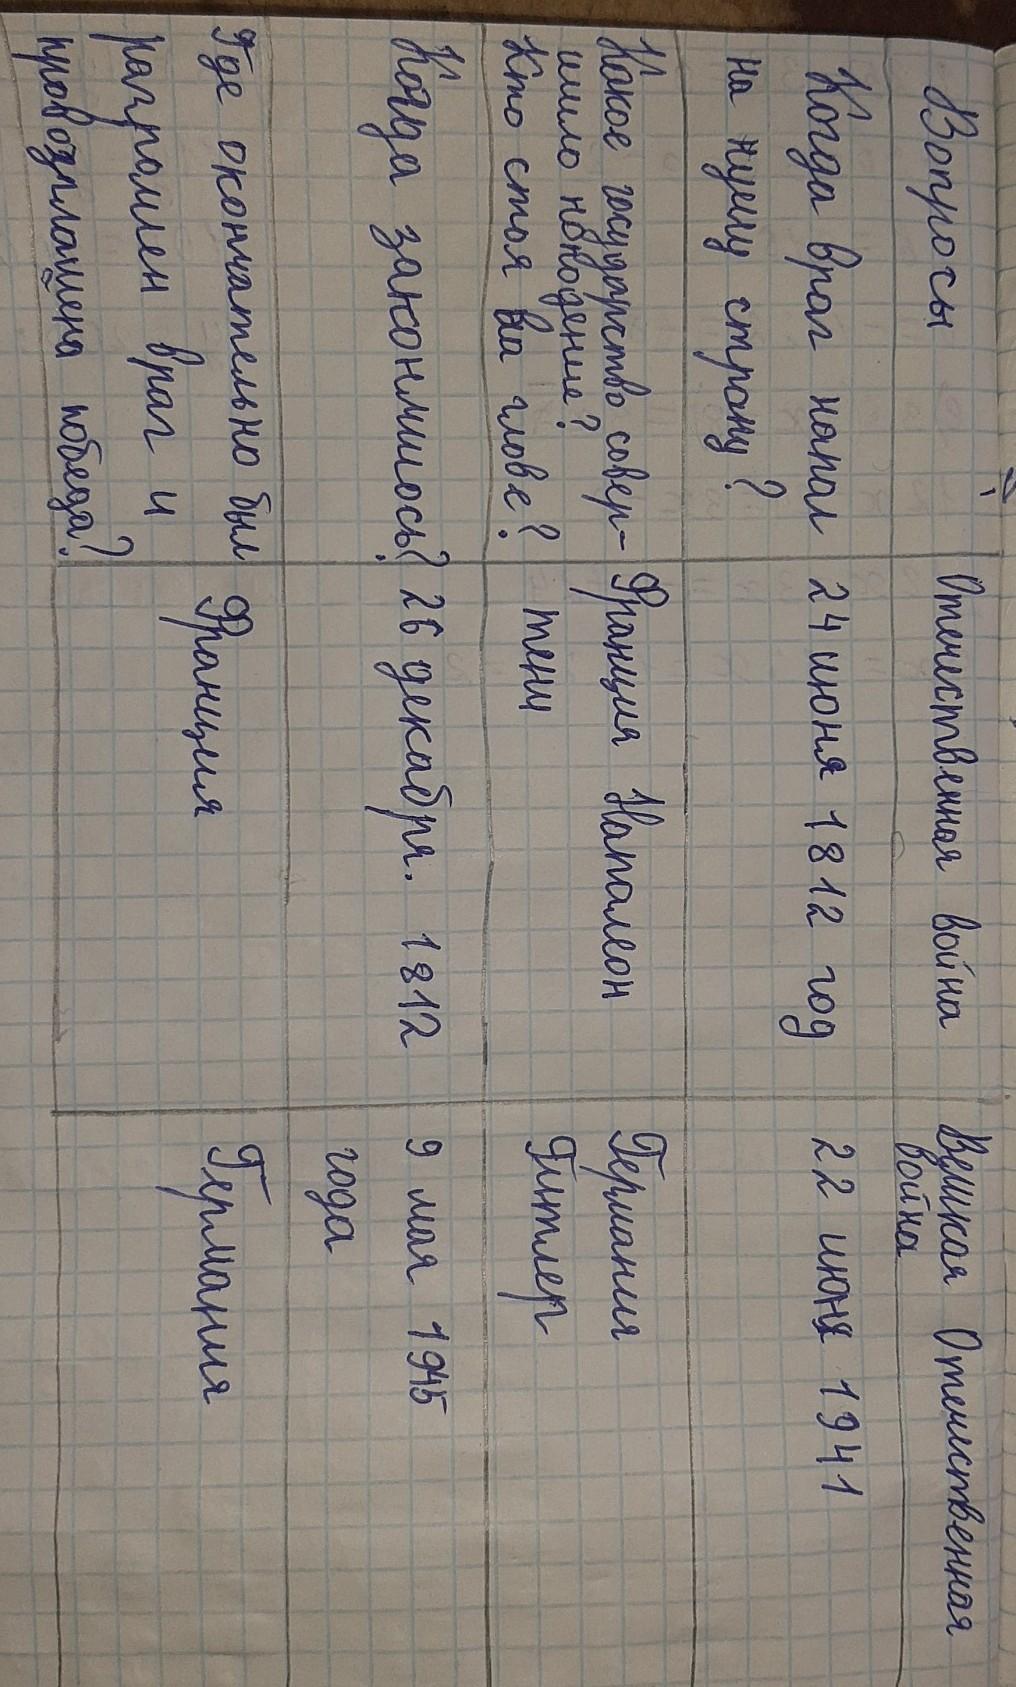 Вопросы
Отечественная война
Великая Отечественная
война
Когда враг напал
на нашу страну?
24 июня 1812 год
22 июня 1941
Какое государство совер-
шило нападение?
Кто стоял во главе?
Франция Наполеон
Германия
Гитлер
Когда закончилось?
26 декабря. 1812
9 мая 1945
года
Где окончательно был
разгромлен враг и
провозглашена победа?
Франция
Германия